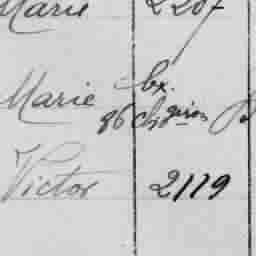 Marie 2207
Marie bx.
96 ch
Victor 2119